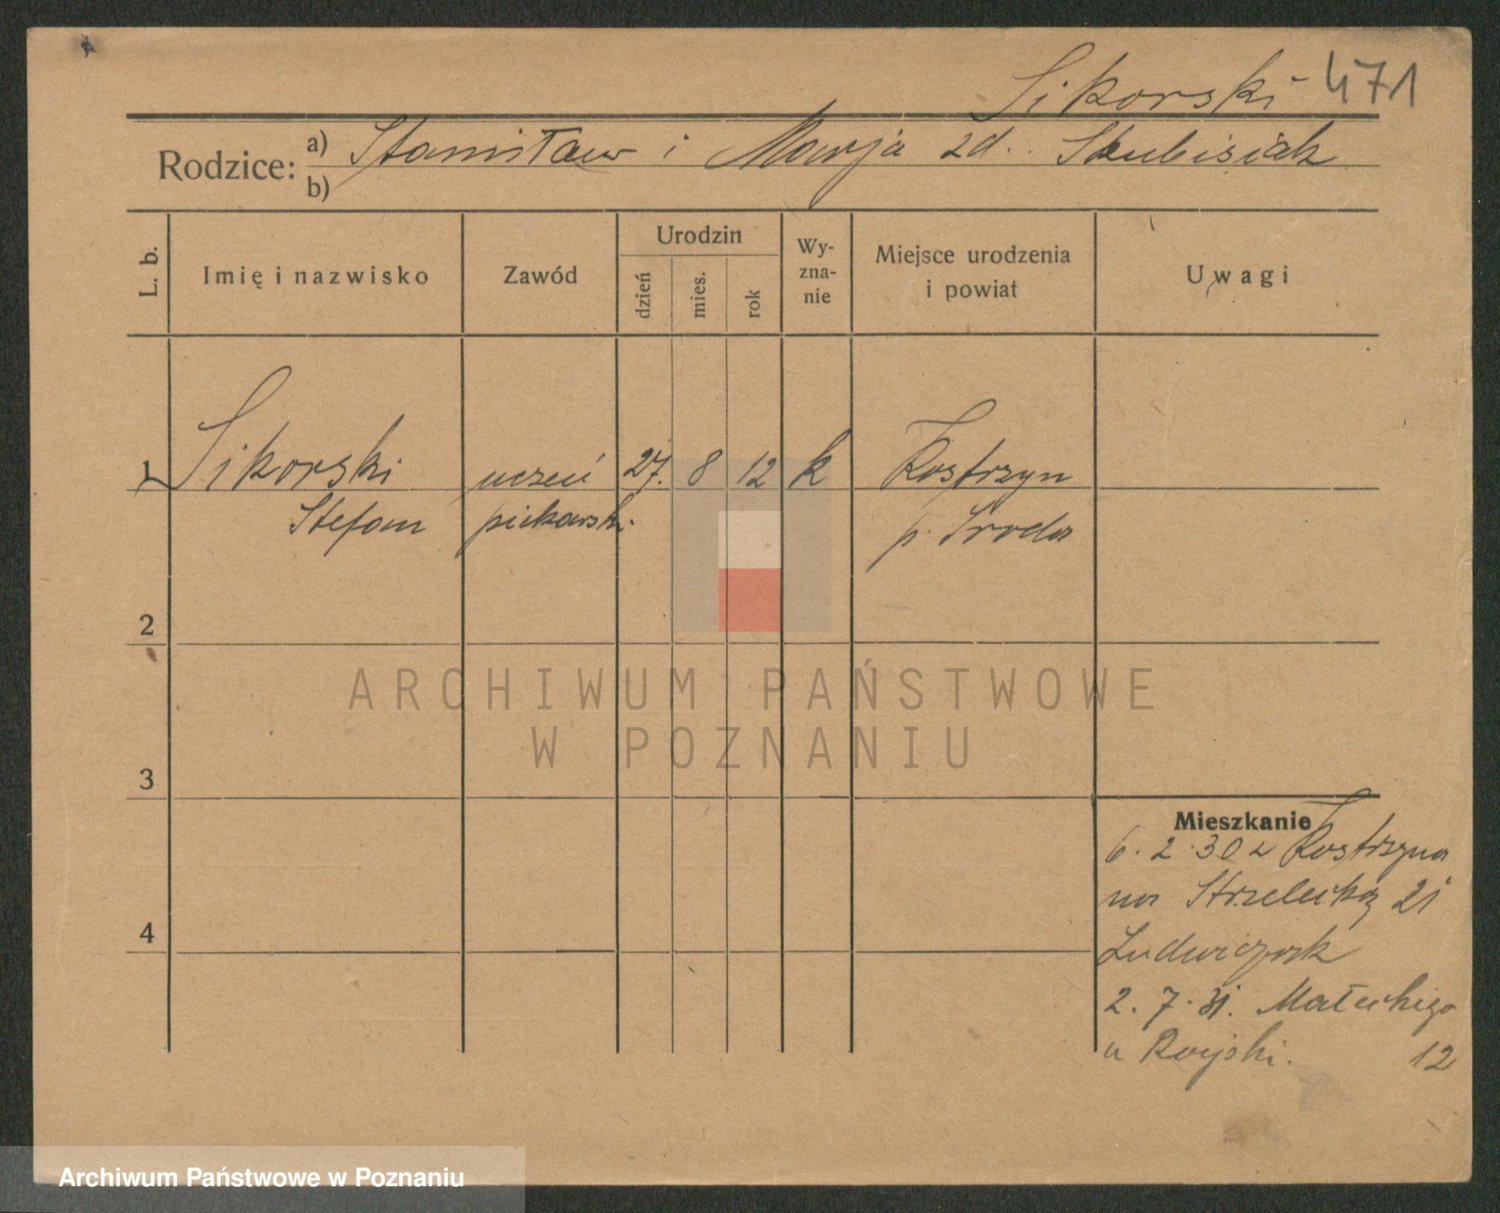 Sikorski 471
Rodzice: a) Stanisław i Marja zd. Skubisiak
b)
L. b.
Imię i nazwisko
Zawód
Urodzin
dzień
mies.
rok
Wy-
zna-
nie
Miejsce urodzenia
i powiat
Uwagi
1 Sikorski uczeń 27. 8 12 k Kostrzyn
Stefan piekarski. p. Sroda
2
3
4
Mieszkanie
6. 2. 30 z Kostrzyna
na Strzelecką 21
Ludwiczak
2. 7. 31. Małeckiego
u Rajski. 12
ARCHIWUM PAŃSTWOWE
W POZNANIU
Archiwum Państwowe w Poznaniu